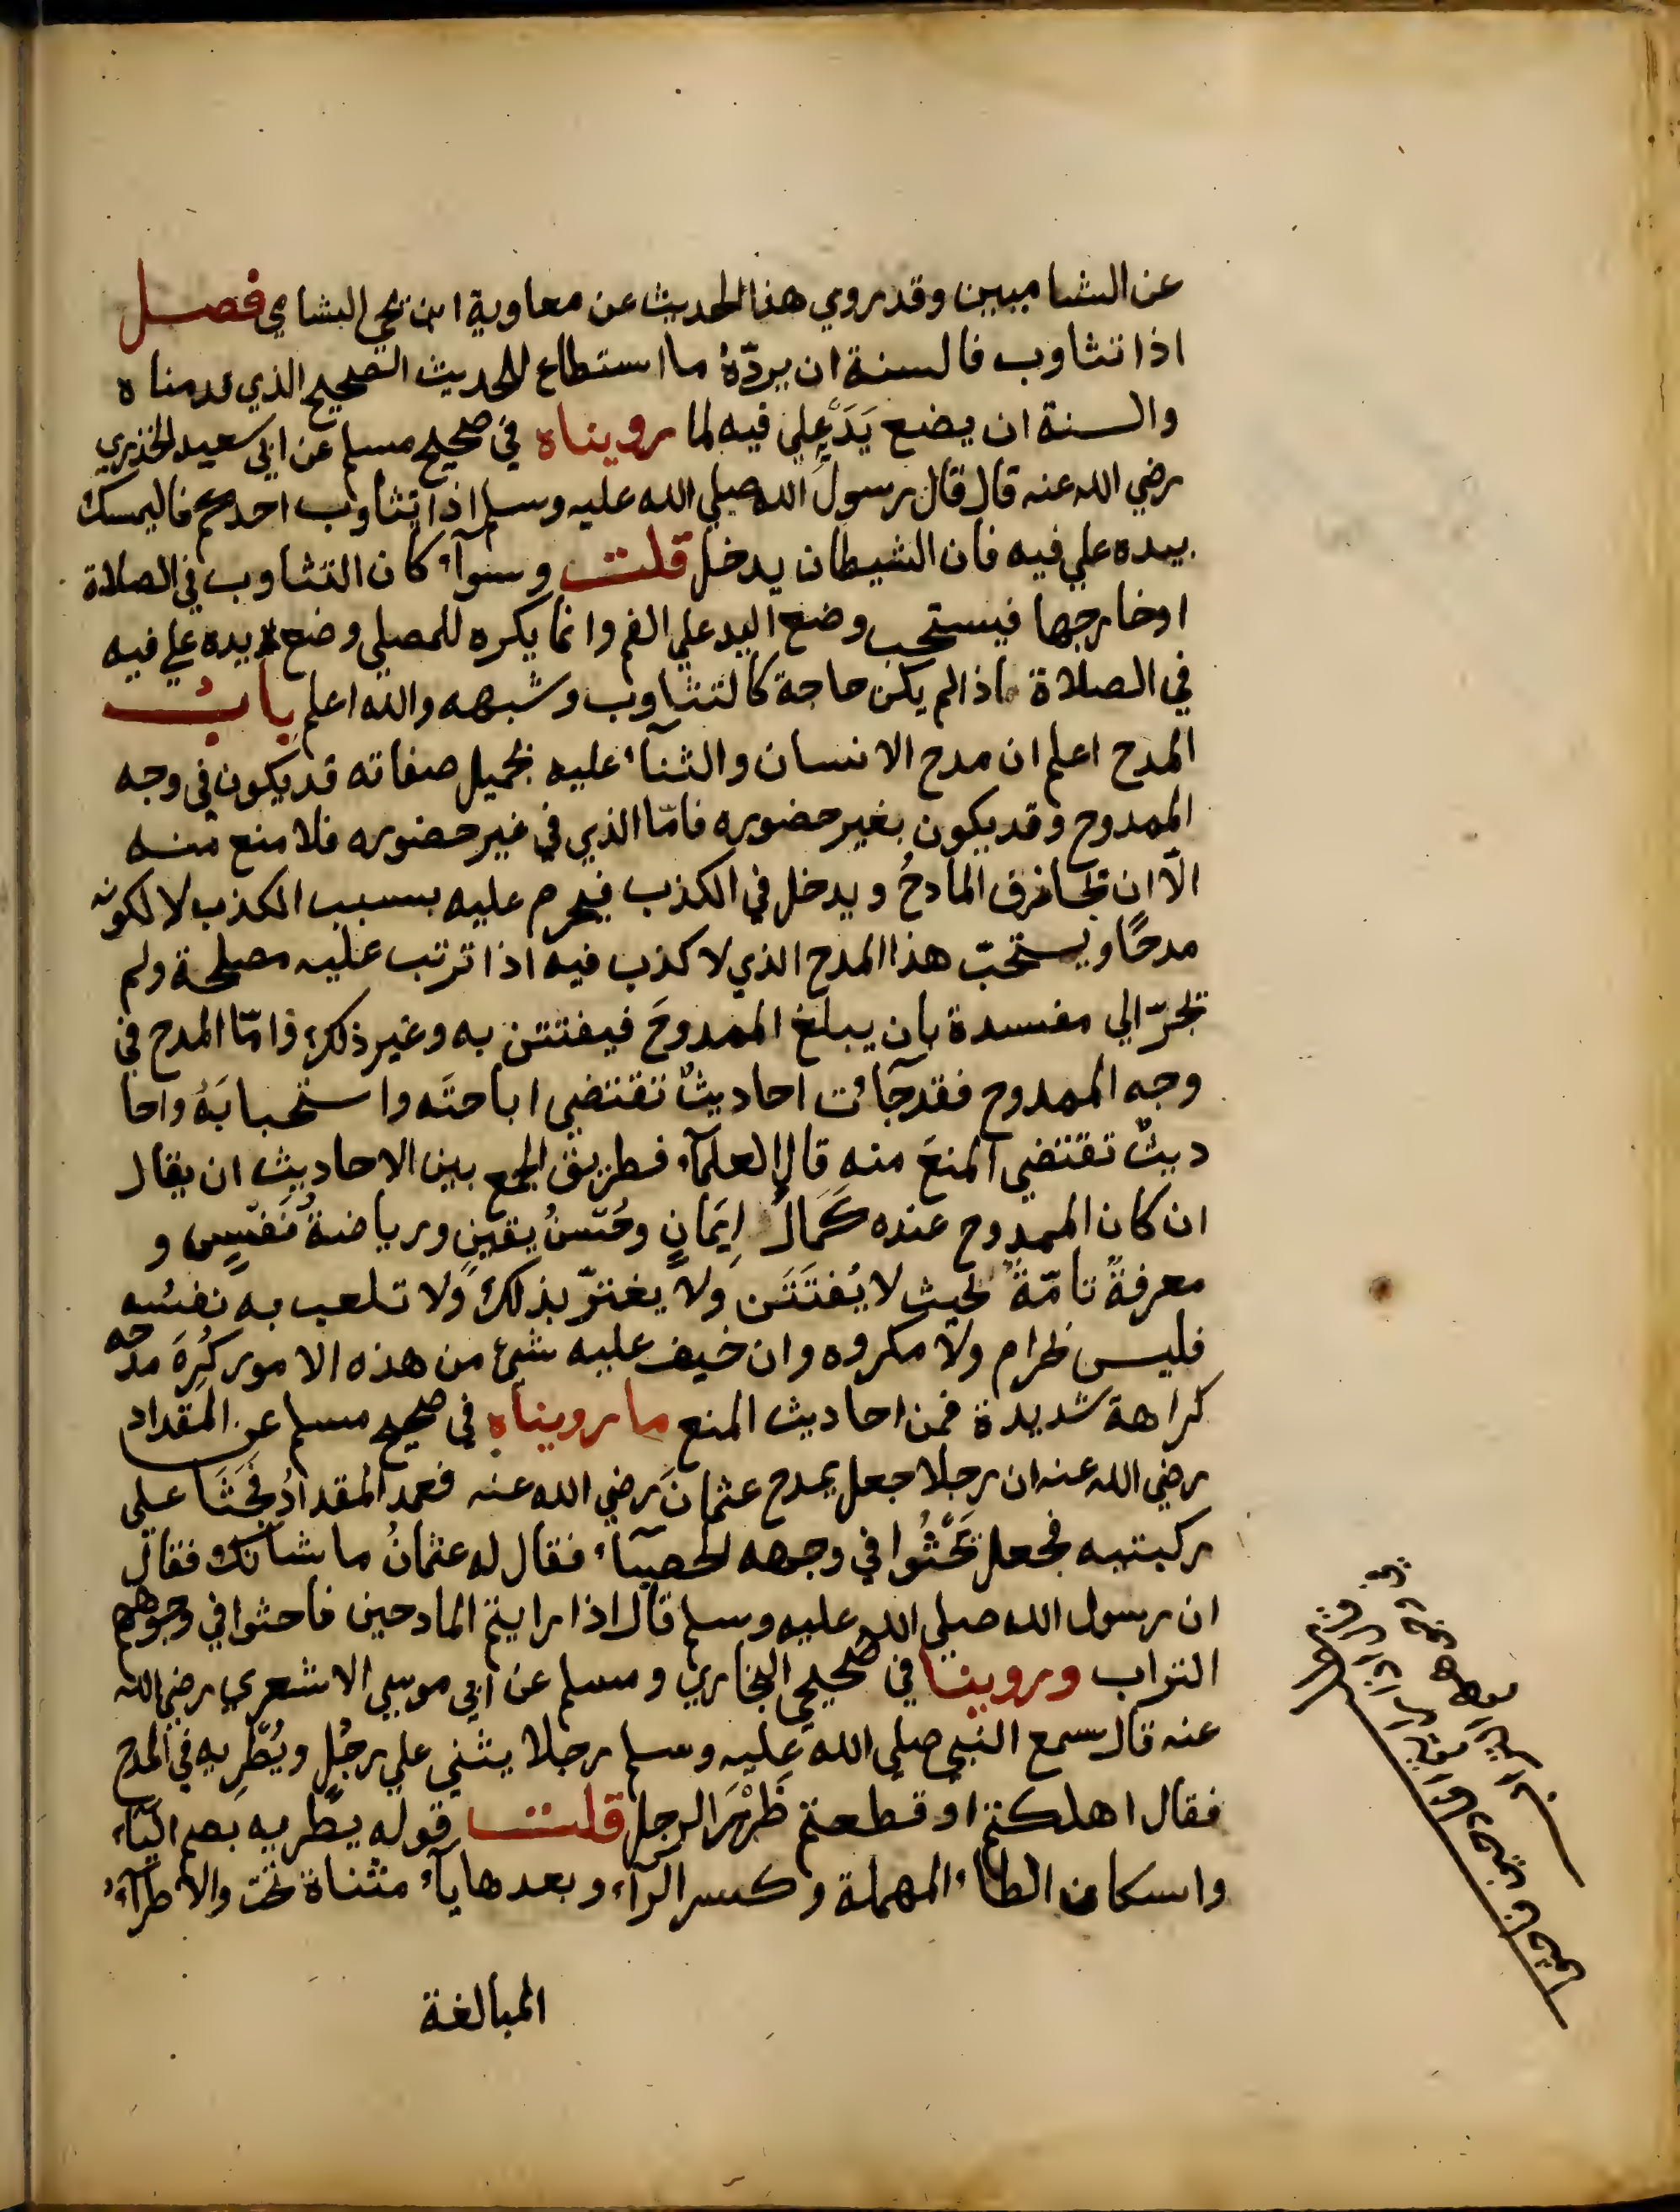 عن الشاميين وقد روي هذا الحديث عن معاوية ابن يحي الشامي فصل
اذا تثاوب فالسنة ان يردّهُ ما استطاع للحديث الصحيح الذي قدمناه
والسنة ان يضع يَدَهُ علي فيه لما رويناه في صحيح مسلم عن ابي سعيد الخذري
رضي الله عنه قال قال رسول الله صلي الله عليه وسلم اذا تثاوب احدكم فاليمسك
بيده علي فيه فان الشيطان يدخل قلت وسوآء كان التثاوب في الصلاة
اوخارجها فيستحب وضع اليد علي الفم وانما يكره للمصلي وضع يده علي فيه
في الصلاة اذا لم يكن حاجة كالتثاوب وشبهه والله اعلم بابُ
المدح اعلم ان مدح الانسان والثنآء عليه بجميل صفاته قد يكون في وجه
الممدوح وقد يكون بغير حضوره فامّا الذي في غير حضوره فلا منع منه
الّا ان يجازف المادحُ ويدخل في الكذب فيحرم عليه بسبب الكذب لا لكونه
مدحًا ويستحبّ هذا المدح الذي لا كذب فيه اذا ترتب عليه مصلحة ولم
يجرّ الي مفسدة بان يبلغ الممدوحَ فيفتتن به وغير ذلك وامّا المدح في
وجه الممدوح فقد جآئت احاديثٌ تقتضي اباحتَه واستحبابَهُ واحا
ديثٌ تقتضي المنعَ منه قال العلمآء فطريق الجمع بين الاحاديث ان يقال
ان كان الممدوح عنده كَمَالُ اِيمَانٍ وحُسْنُ يقينٍ ورياضةُ نَفْسٍ و
معرفةً تامّةً بحيث لا يُفتَتَن ولا يغترّ بذلك ولا تلعب به نفسُه
فليس بحرام ولا مكروه وان خيف عليه شئ من هذه الامور كُرِهَ مدحه
كراهة شديدة فمن احاديث المنع ما رويناه في صحيح مسلم عن المقداد
رضي الله عنه ان رجلا جعل يمدح عثمانَ رضي الله عنه فعمد المقدادُ فَجَثَا علي
ركبتيه فجعل يَحْثُوا في وجهه الحصبآء فقال له عثمانُ ما شانك فقال
ان رسول الله صلي الله عليه وسلم قال اذا رايتم المادحين فاحثوا في وجوههم
التراب وروينا في صحيحي البخاري ومسلم عن ابي موسي الاشعري رضي الله
عنه قال سمع النبي صلي الله عليه وسلم رجلا يثني علي رجُلٍ ويُطرِيه في المدح
فقال اهلكتم او قطعتم ظَهْرَ الرجل قلت قوله يطريه بضم اليآء
واسكان الطاء المهملة وكسر الرآء وبعدها يآء مثناة تحت والاطرآءُ
المبالغة